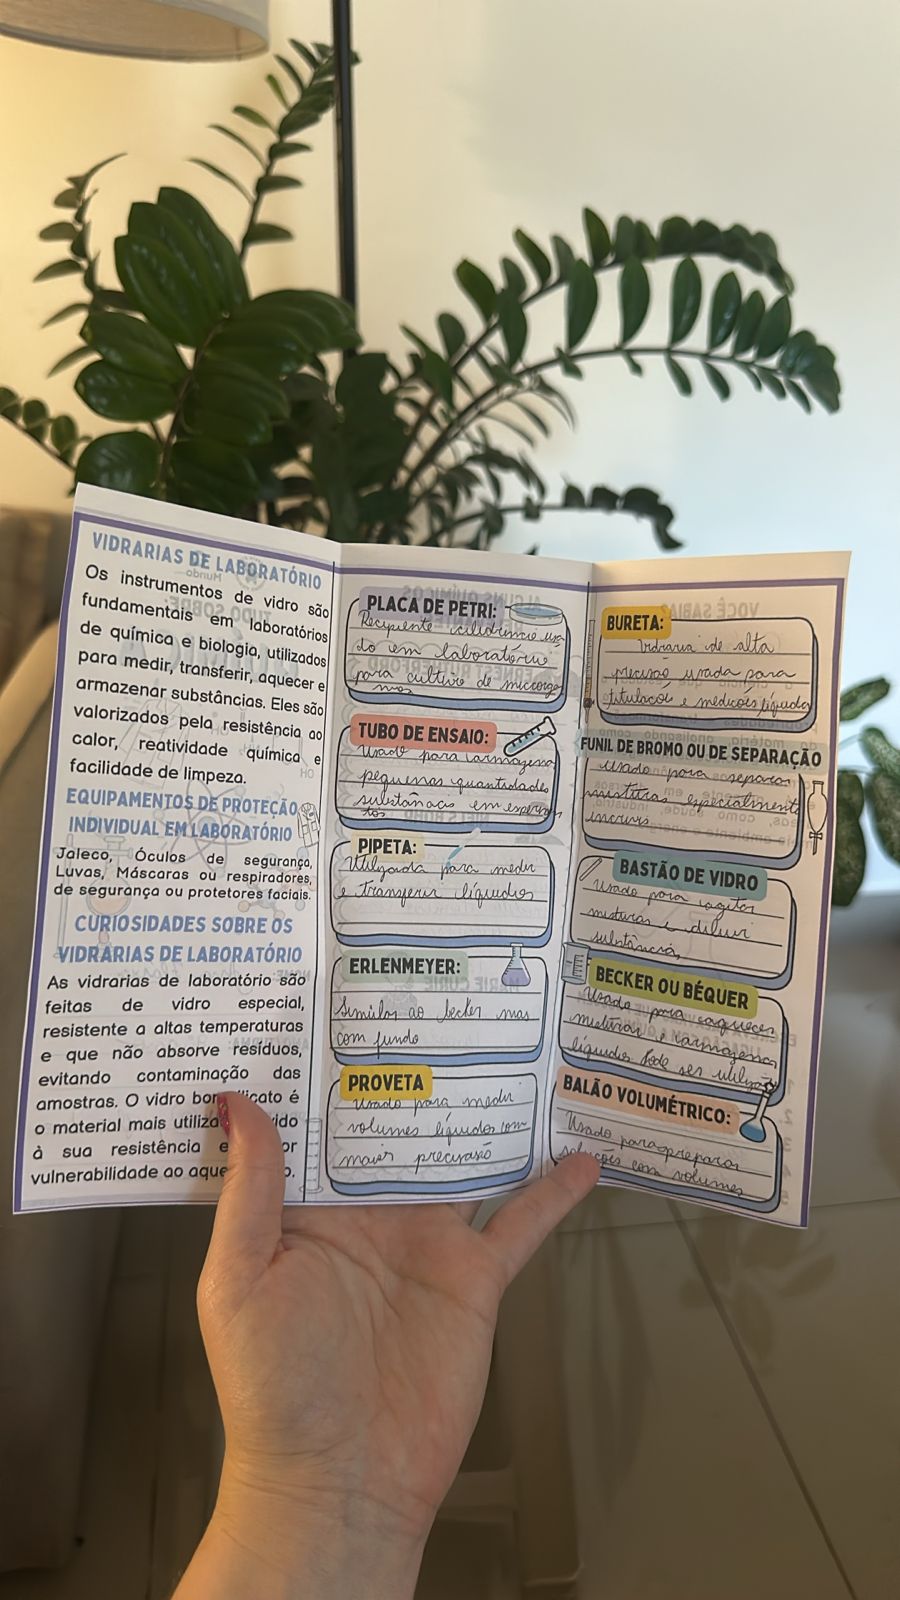 VIDRARIAS DE LABORATÓRIO
Os instrumentos de vidro são
fundamentais em laboratórios
de química e biologia, utilizados
para medir, transferir, aquecer e
armazenar substâncias. Eles são
valorizados pela resistência ao
calor, reatividade química e
facilidade de limpeza.
EQUIPAMENTOS DE PROTEÇÃO
INDIVIDUAL EM LABORATÓRIO
Jaleco, Óculos de segurança,
Luvas, Máscaras ou respiradores,
de segurança ou protetores faciais.
CURIOSIDADES SOBRE OS
VIDRARIAS DE LABORATÓRIO
As vidrarias de laboratório são
feitas de vidro especial,
resistente a altas temperaturas
e que não absorve resíduos,
evitando contaminação das
amostras. O vidro é
o material mais
à sua resistência e
vulnerabilidade ao
PLACA DE PETRI:
Recipiente usa
do em laboratório
para cultivo de microrga
TUBO DE ENSAIO:
Usado para
pequenas quantidades
substâncias em
tos.
PIPETA:
Utilizada para medir
e líquidos
ERLENMEYER:
Similar ao becker mas
com fundo
PROVETA
Usado para medir
volumes líquidos com
maior
BURETA:
Vidraria de alta
precisão usada para
e medições líquidos
FUNIL DE BROMO OU DE SEPARAÇÃO
Usado para separar
especialmente
BASTÃO DE VIDRO
Usado para agitar
misturas e diluir
BECKER OU BÉQUER
Usado para aquecer
misturar e armazenar
líquidos Pode ser
BALÃO VOLUMÉTRICO:
Usado para preparar
soluções com volumes